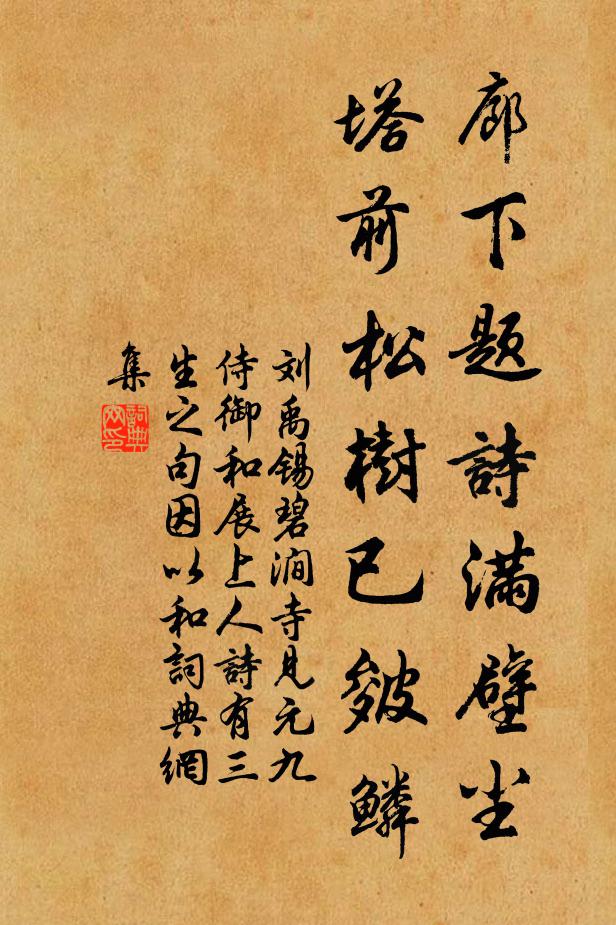 廊下題詩满壁尘
塔前松樹已皴鳞
刘禹锡碧涧寺見元九
侍御和展上人詩有三
生之句因以和詞典網
集
詞典
网印